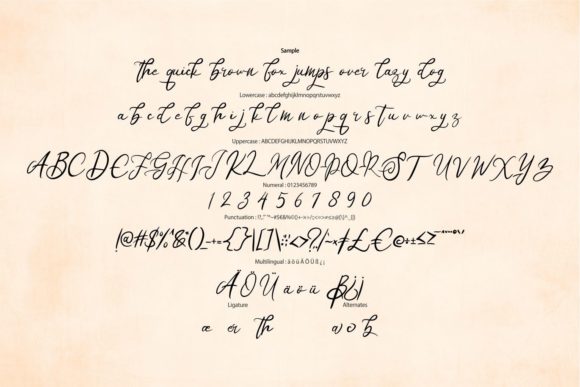 Sample
the quick brown fox jumps over lazy dog
Lowercase : abcdefghijklmnopqrstuvwxyz
a b c d e f g h i j k l m n o p q r s t u v w x y z
Uppercase : ABCDEFGHIJKLMNOPQRSTUVWXYZ
A B C D E F G H I J K L M N O P Q R S T U V W X Y Z
Numeral : 0123456789
1 2 3 4 5 6 7 8 9 0
Punctuation :
!@#$%^&*()_-+={}|[]\:;"<>?,/
Multilingual : ä ö ü Ä Ö Ü ß ¿ ¡
Ä Ö Ü ä ö ü ß ¿ ¡
Ligature Alternates
æ er th a o h